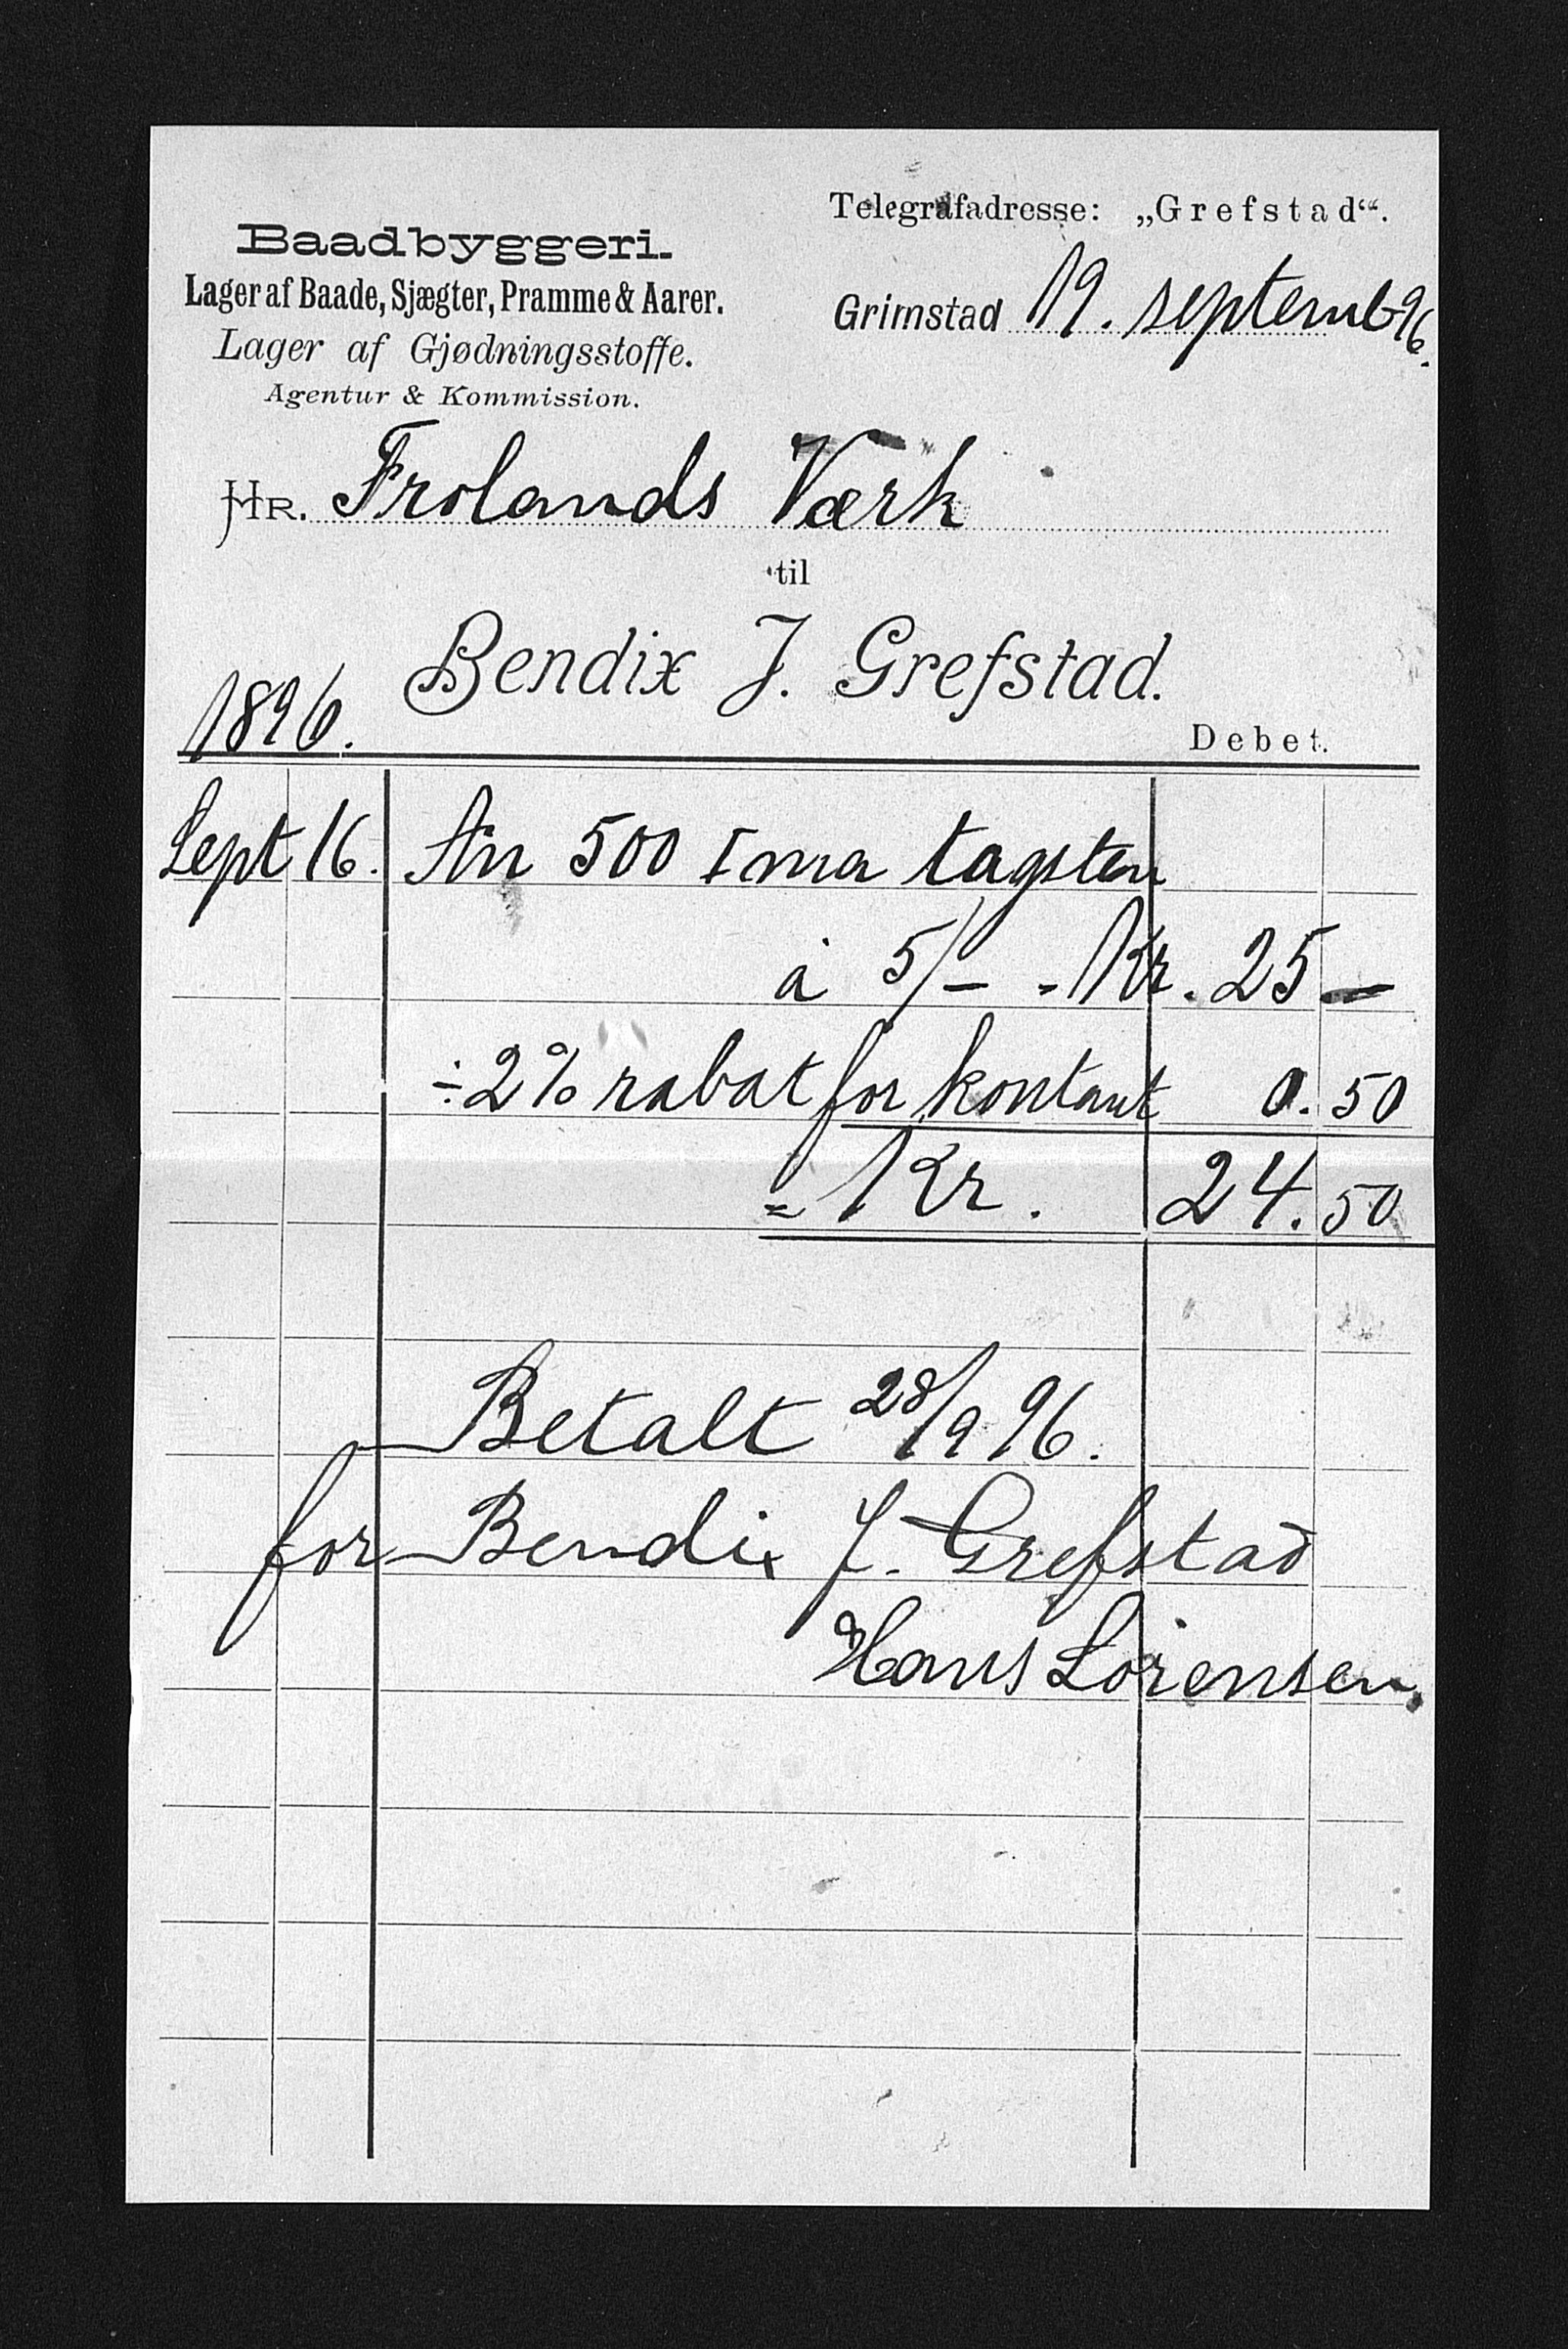 Telegrafadresse: „Grefstad“.
Baadbyggeri.
Lager af Baade, Sjægter, Pramme & Aarer.
Lager af Gjødningsstoffe.
Agentur & Kommission.
Grimstad 19. septemb 96.
HR. Frolands Værk
til
Bendix J. Grefstad.
1896.
Debet.
Sept 16. An 500 Ima tagsten
à 5/– = Kr. 25 –
÷ 2% rabat for kontant 0.50
= Kr. 24.50
Betalt 28/9 96.
for Bendix J. Grefstad
Hans Lorensen.